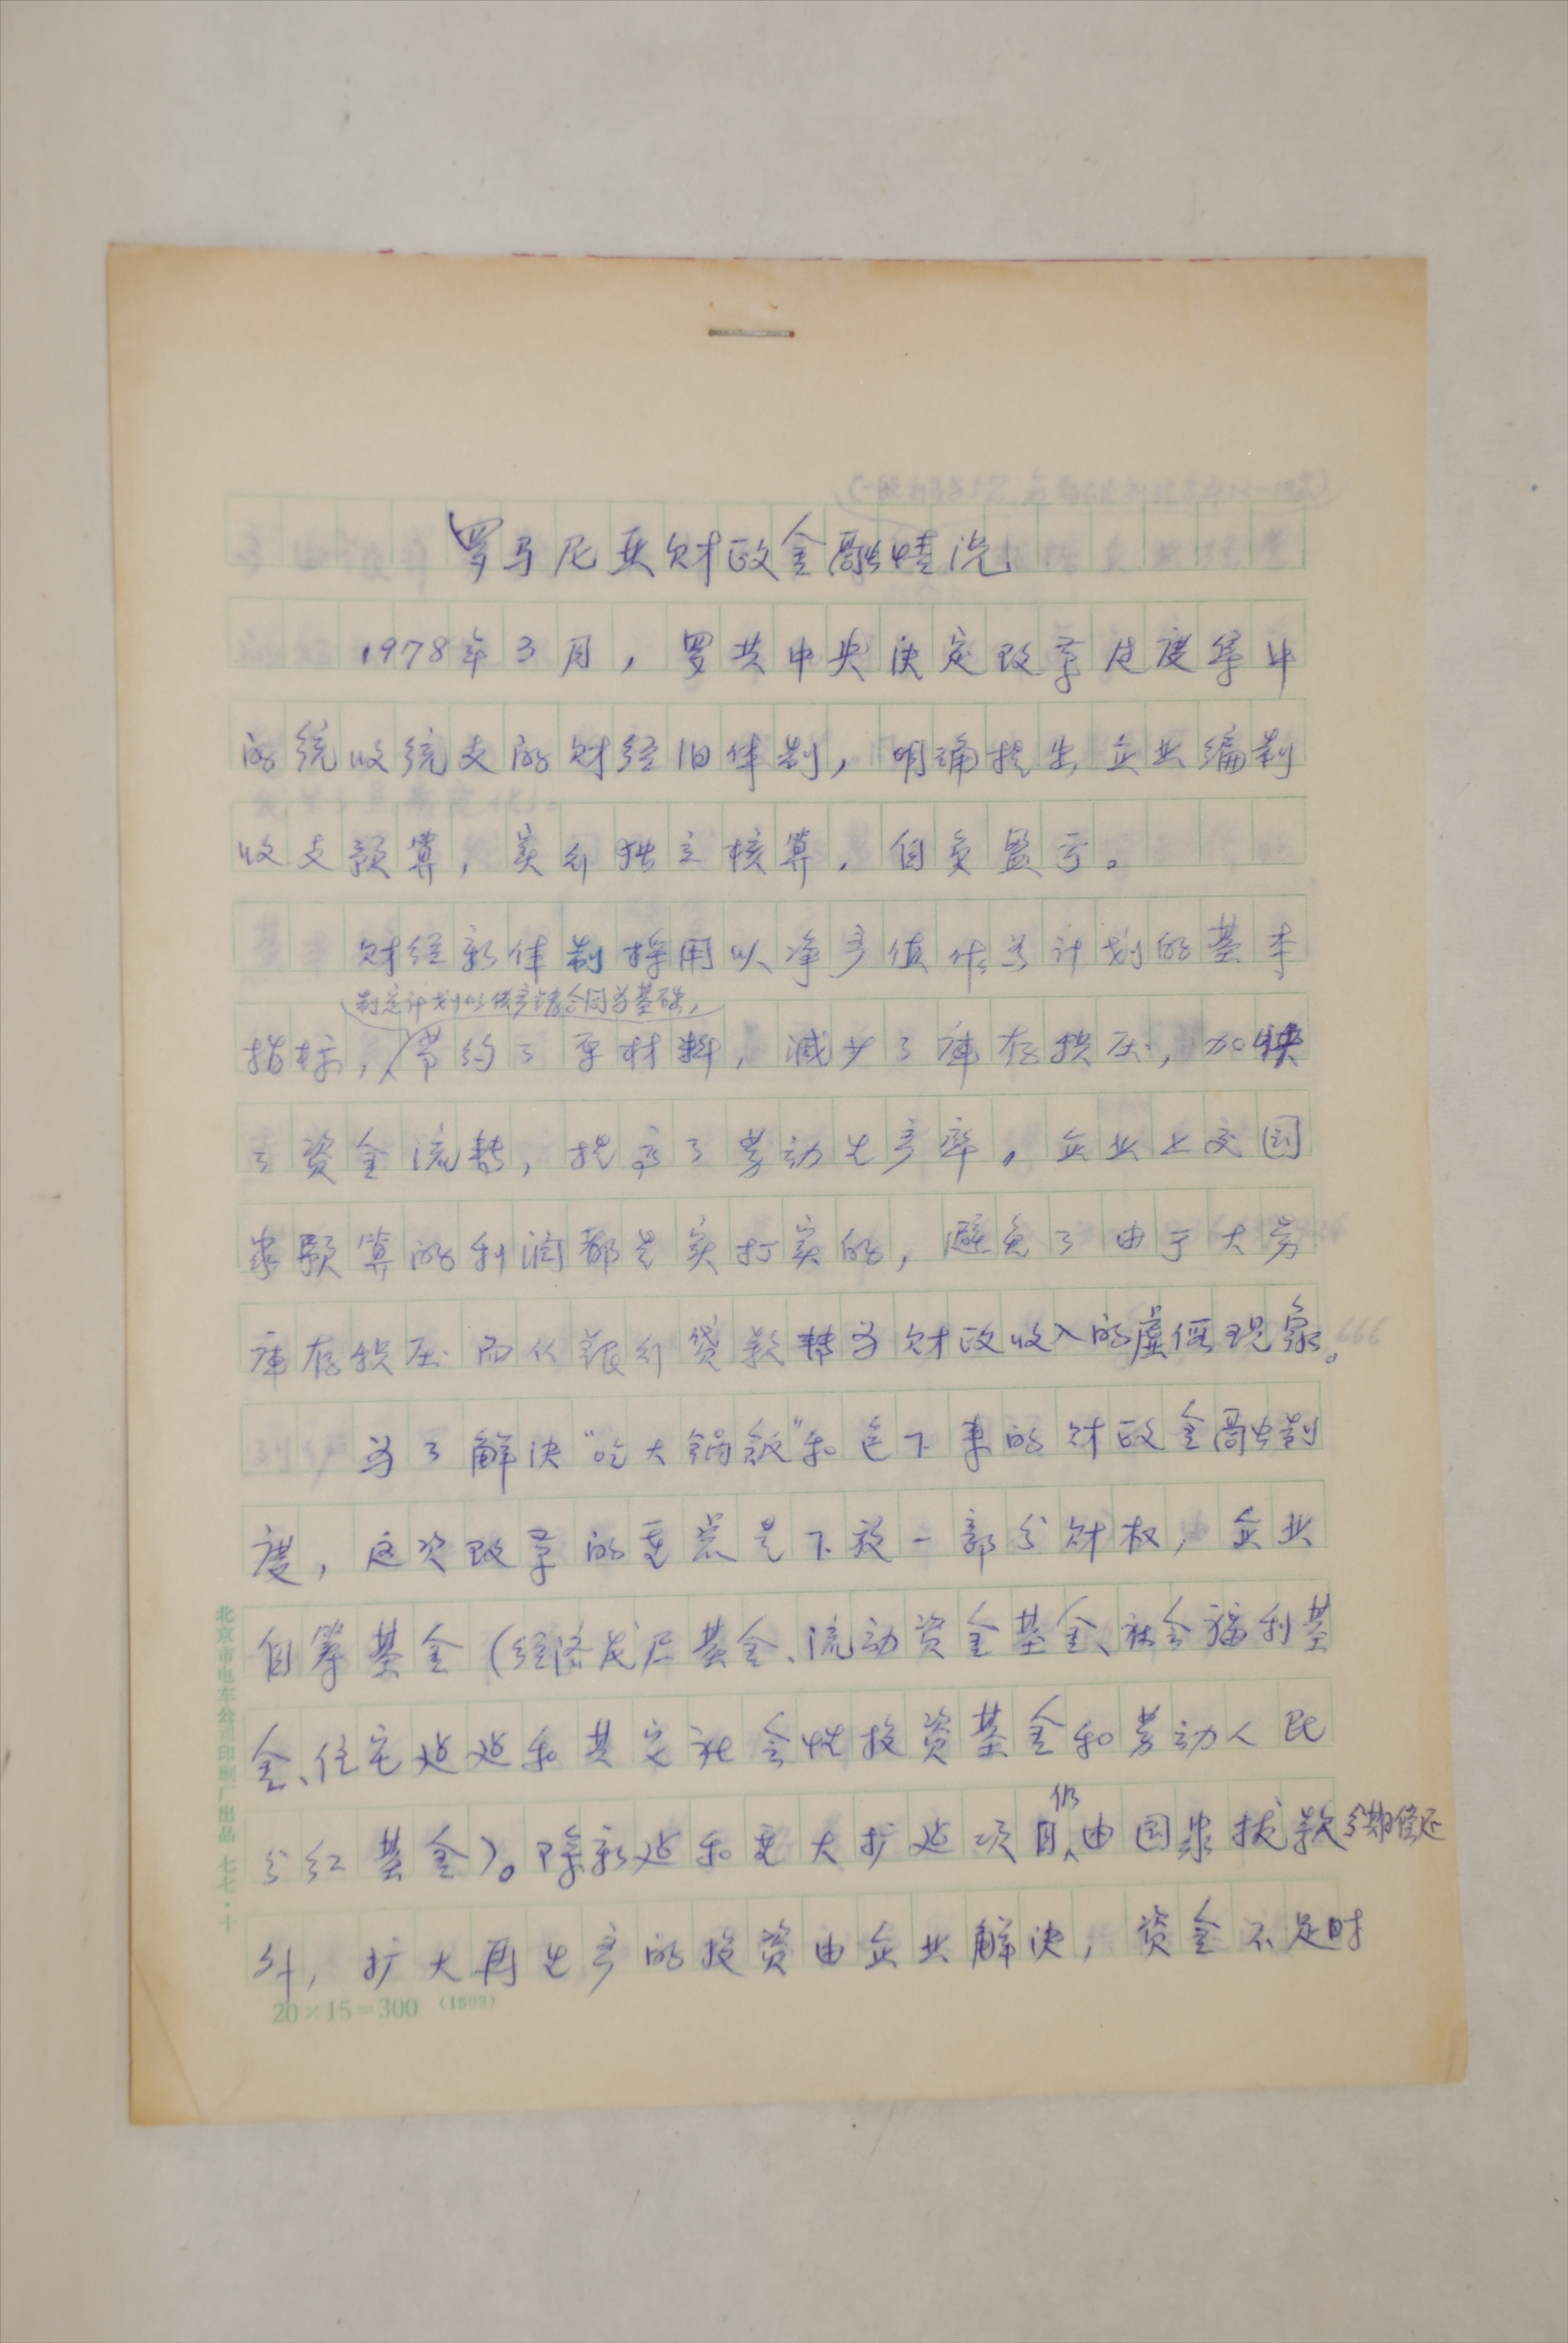 罗马尼亚财政金融情况
1978年3月，罗共中央决定改革过度集中
的统收统支的财经旧体制，明确提出企业编制
收支预算，实行独立核算，自负盈亏。
财经新体制採用以净产值作为计划的基本
制定计划以供产销合同为基础，
指标，节约了原材料，减少了库存积压，加快
了资金流转，提高了劳动生产率。企业上交国
家预算的利润都是实打实的，避免了由于大劳
库存积压而从银行贷款转为财政收入的虚假现象。
为了解决“吃大锅饭”和包下来的财政金融制
度，这次改革的重点是下放一部分财权，企业
自筹基金（经济发展基金、流动资金基金、社会福利基
金、住宅建造和其它社会性投资基金和劳动人民
分红基金）。除新建和重大扩建项目仍由国家拨款分期偿还
外，扩大再生产的投资由企业解决，资金不足时
北京市电车公司印刷厂出品 七七·十
20×15=300 (1503)